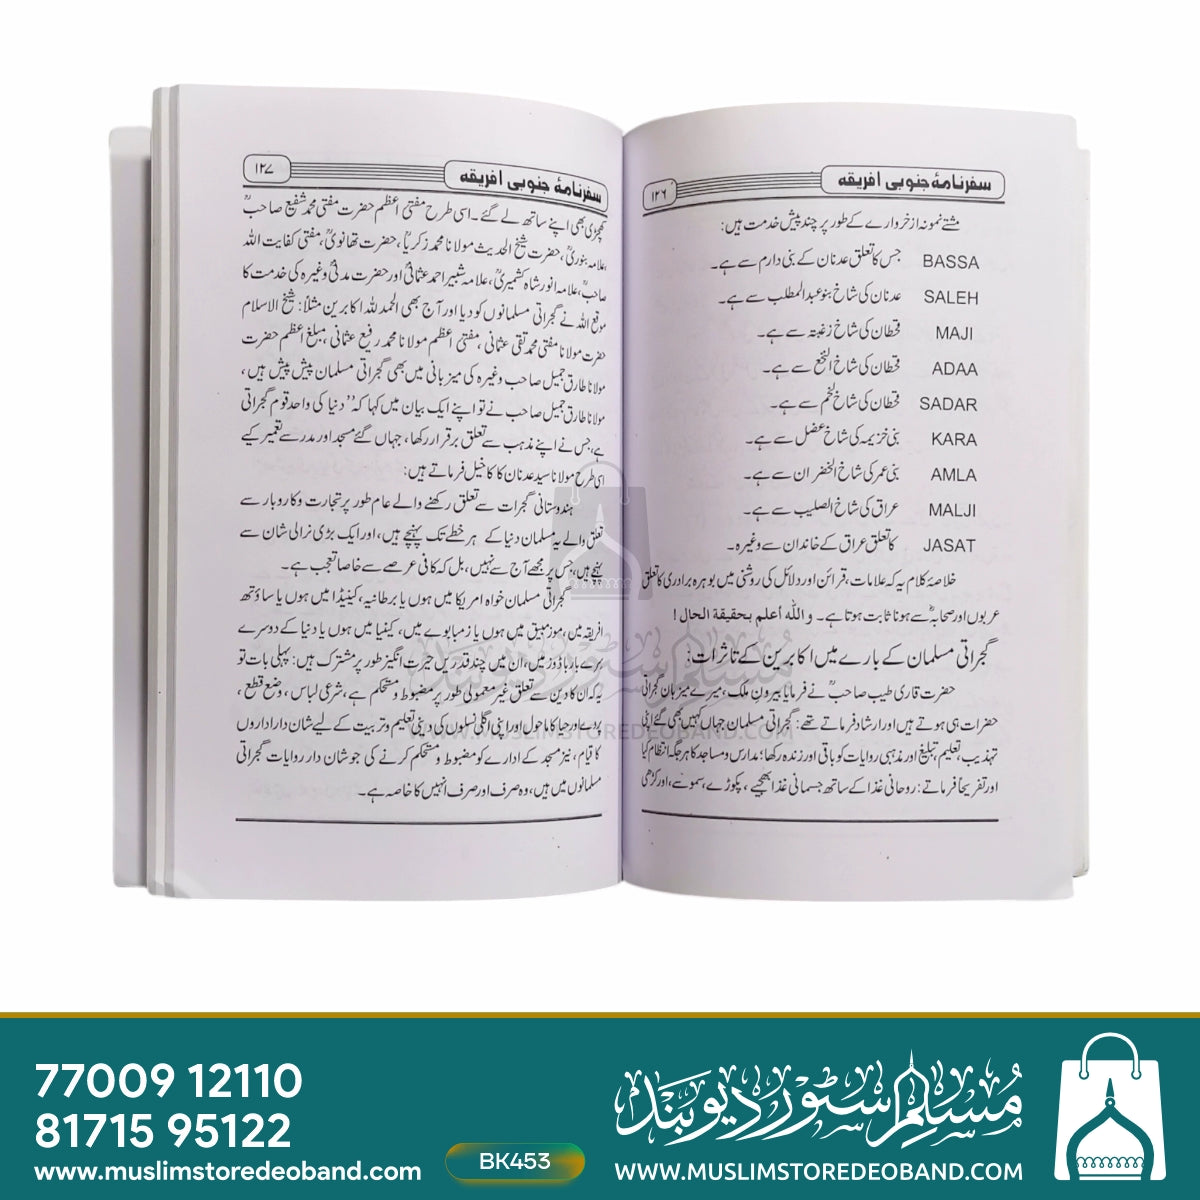 سفرنامۂ جنوبی افریقہ
۱۲۶
مشتے نمونہ از خروارے کے طور پر چند پیش خدمت ہیں:
BASSA جس کا تعلق عدنان کے بنی دارم سے ہے۔
SALEH عدنان کی شاخ بنو عبدالمطلب سے ہے۔
MAJI قحطان کی شاخ زغبتہ سے ہے۔
ADAA قحطان کی شاخ النخع سے ہے۔
SADAR قحطان کی شاخ لخم سے ہے۔
KARA بنی خزیمہ کی شاخ عضل سے ہے۔
AMLA بنی عمر کی شاخ الخضر ان سے ہے۔
MALJI عراق کی شاخ الصلیب سے ہے۔
JASAT کا تعلق عراق کے خاندان سے وغیرہ۔
خلاصۂ کلام یہ کہ علامات، قرائن اور دلائل کی روشنی میں بوہرہ برادری کا تعلق
عربوں اور صحابہؓ سے ہونا ثابت ہوتا ہے۔ واللہ أعلم بحقیقة الحال!
گجراتی مسلمان کے بارے میں اکابرین کے تاثرات:
حضرت قاری طیب صاحبؒ نے فرمایا بیرونِ ملک، میرے میزبان گجراتی
حضرات ہی ہوتے ہیں اور ارشاد فرماتے تھے: گجراتی مسلمان جہاں کہیں بھی گئے اپنی
تہذیب، تعلیم، تبلیغ اور مذہبی روایات کو باقی اور زندہ رکھا؛ مدارس و مساجد کا ہر جگہ انتظام کیا
اور تفریحاً فرماتے: روحانی غذا کے ساتھ جسمانی غذا بھجیے، پکوڑے، سموسے، اور کڑھی
سفرنامۂ جنوبی افریقہ
۱۲۷
کھچڑی بھی اپنے ساتھ لے گئے۔ اسی طرح مفتی اعظم حضرت مفتی محمد شفیع صاحبؒ
،علامہ بنوریؒ، حضرت شیخ الحدیث مولانا محمد زکریاؒ، حضرت تھانویؒ، مفتی کفایت اللہ
صاحبؒ، علامہ انور شاہ کشمیریؒ، علامہ شبیر احمد عثمانیؒ اور حضرت مدنیؒ وغیرہ کی خدمت کا
موقع اللہ نے گجراتی مسلمانوں کو دیا اور آج بھی الحمدللہ اکابرین مثلاً: شیخ الاسلام
حضرت مولانا مفتی محمد تقی عثمانی، مفتی اعظم مولانا محمد رفیع عثمانی، مبلغ اعظم حضرت
مولانا طارق جمیل صاحب وغیرہ کی میزبانی میں بھی گجراتی مسلمان پیش پیش ہیں،
مولانا طارق جمیل صاحب نے تو اپنے ایک بیان میں کہا کہ ”دنیا کی واحد قوم گجراتی
ہے، جس نے اپنے مذہب سے تعلق برقرار رکھا، جہاں گئے مسجد اور مدرسے تعمیر کیے
اسی طرح مولانا سید عدنان کاکاخیل فرماتے ہیں:
ہندوستانی گجرات سے تعلق رکھنے والے عام طور پر تجارت و کاروبار سے
تعلق والے یہ مسلمان دنیا کے ہر خطے تک پہنچے ہیں، اور ایک بڑی نرالی شان سے
پہنچے ہیں، جس پر مجھے آج سے نہیں، بل کہ کافی عرصے سے خاصا تعجب ہے۔
گجراتی مسلمان خواہ امریکا میں ہوں یا برطانیہ، کینیڈا میں ہوں یا ساؤتھ
افریقہ میں، موزمبیق میں ہوں یا زمبابوے میں، کینیا میں ہوں یا دنیا کے دوسرے
بارباڈوز میں، ان میں چند قدریں حیرت انگیز طور پر مشترک ہیں: پہلی بات تو
یہ کہ ان کا دین سے تعلق غیر معمولی طور پر مضبوط و مستحکم ہے، شرعی لباس، وضع قطع،
پردے اور حیا کا ماحول اور اپنی اگلی نسلوں کی دینی تعلیم و تربیت کے لیے شان دار اداروں
کا قیام، نیز مسجد کے ادارے کو مضبوط و مستحکم کرنے کی جو شان دار روایات گجراتی
مسلمانوں میں ہیں، وہ صرف اور صرف انہیں کا خاصہ ہے۔
مسلم سٹور دیوبند
WWW.MUSLIMSTOREDEOBAND.COM
77009 12110
81715 95122
www.muslimstoredeoband.com
BK453
مسلم سٹور دیوبند
WWW.MUSLIMSTOREDEOBAND.COM